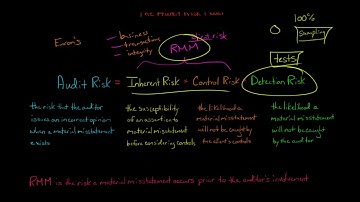 The Audit Risk Model
100%
Enron's
business
transactions
integrity
client risk
RMM
sampling
tests
Audit Risk = Inherent Risk × Control Risk × Detection Risk
the risk that the auditor
issues an incorrect opinion
when a material misstatement
exists
the susceptibility
of an assertion to
material misstatement
before considering controls
the likelihood a
material misstatement
will not be caught by
the client's controls
the likelihood a
material misstatement
will not be caught
by the auditor
RMM is the risk a material misstatement occurs prior to the auditor's involvement